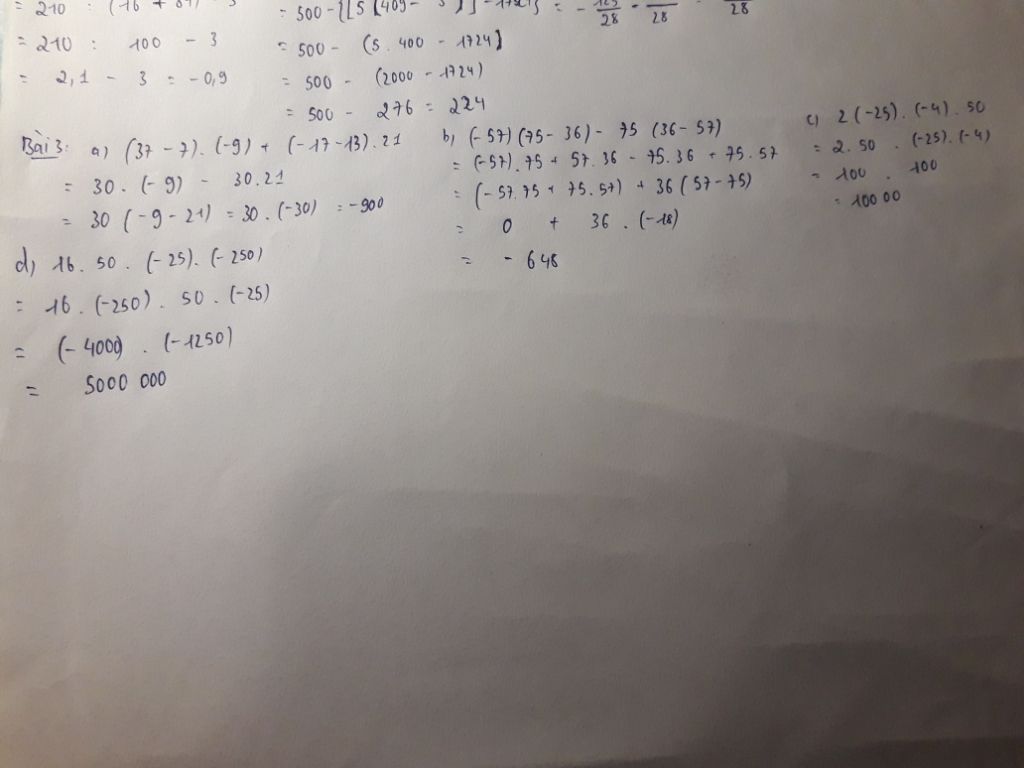 = 210 : (16 + 84) - 3
= 210 : 100 - 3
= 2,1 - 3 = -0,9
= 500 - {[5 (409 - ) ] - 1724}
= 500 - (5 . 400 - 1724]
= 500 - (2000 - 1724)
= 500 - 276 = 224
28 28 28
Bài 3: a) (37 - 7) . (-9) + (-17 - 13) . 21
= 30 . (-9) - 30.21
= 30 (-9 - 21) = 30 . (-30) = -900
b) (-57) (75 - 36) - 75 (36 - 57)
= (-57) . 75 + 57 . 36 - 75.36 + 75 . 57
= (-57.75 + 75.57) + 36 (57 - 75)
= 0 + 36 . (-18)
= - 648
c) 2 (-25) . (-4) . 50
= 2. 50 . (-25) . (-4)
= 100 . 100
= 100 00
d) 16 . 50 . (-25) . (-250)
= 16 . (-250) . 50 . (-25)
= (- 4000) . (-1250)
= 5000 000